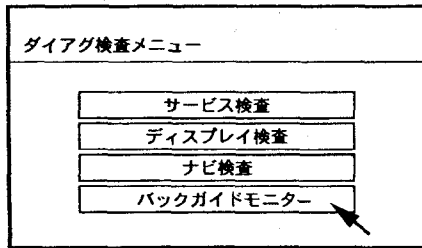 ダイアグ検査メニュー
サービス検査
ディスプレイ検査
ナビ検査
バックガイドモニター